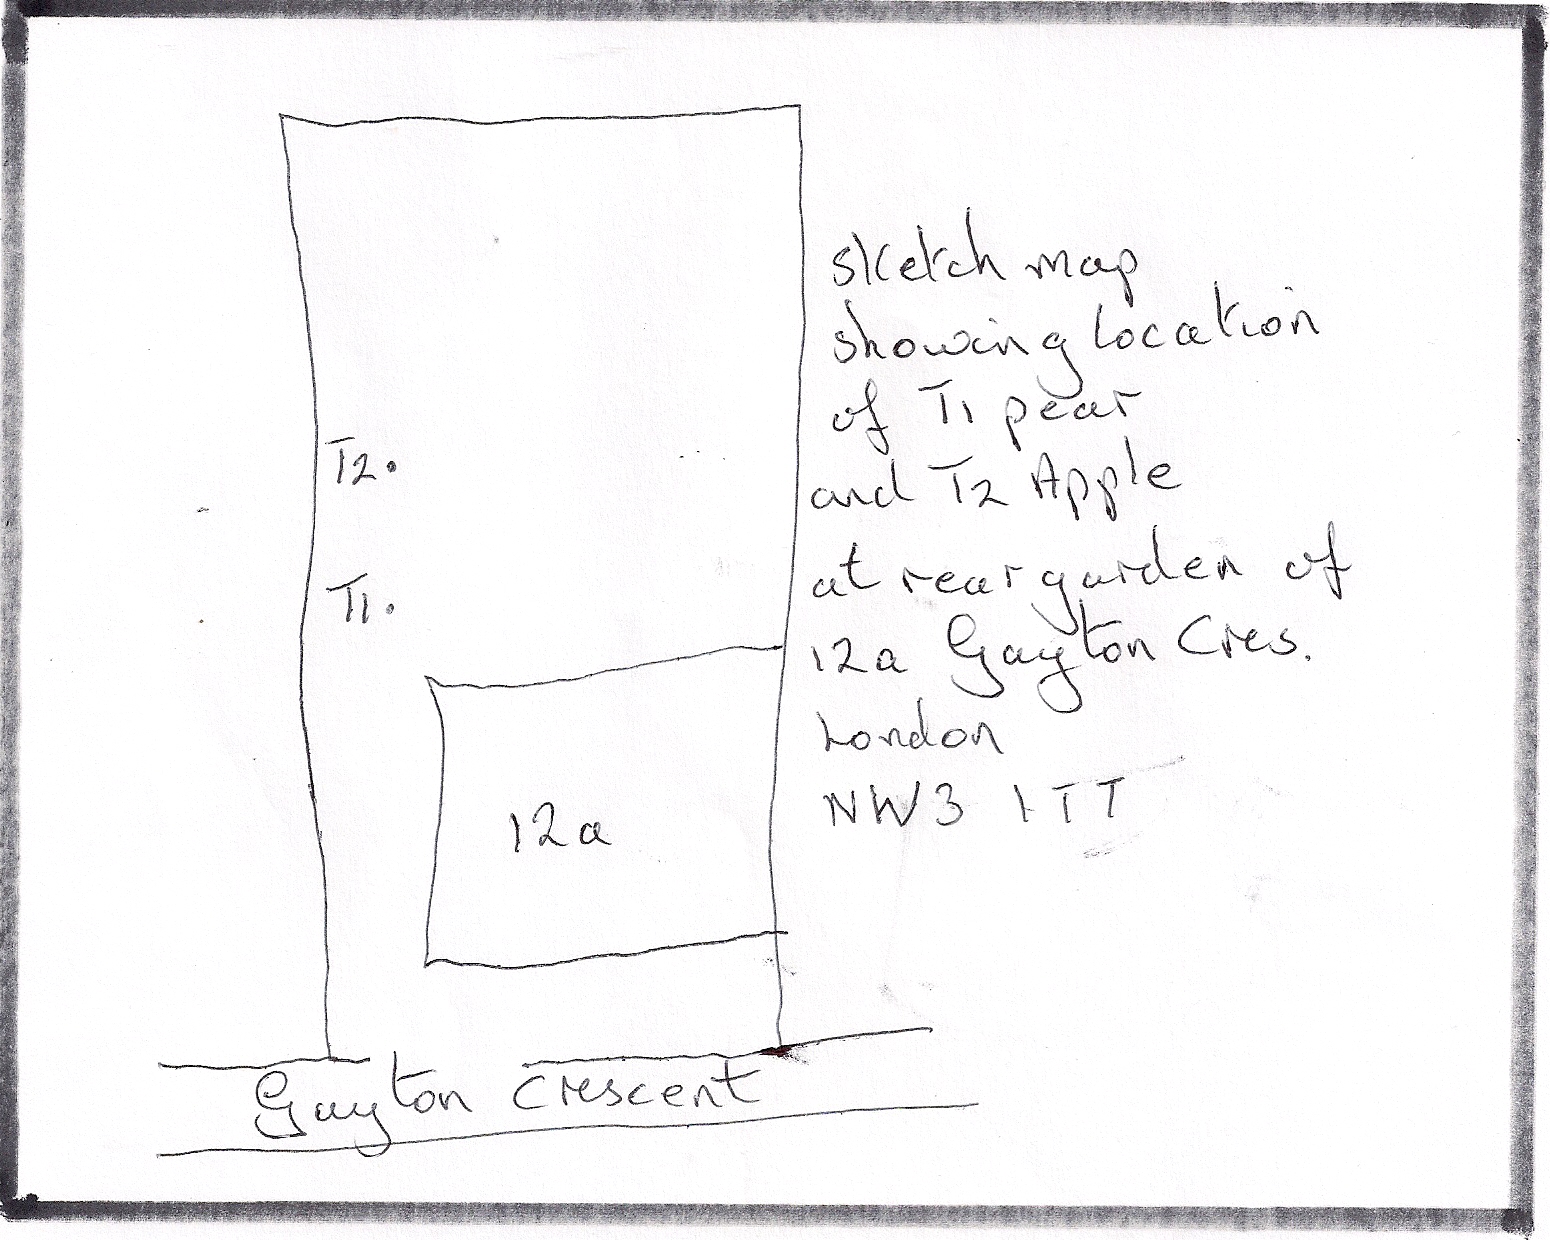 sketch map
showing location
of T1 pear
and T2 Apple
at rear garden of
12a Gayton Cres.
London
NW3 1TT
T2.
T1.
12a
Gayton Crescent